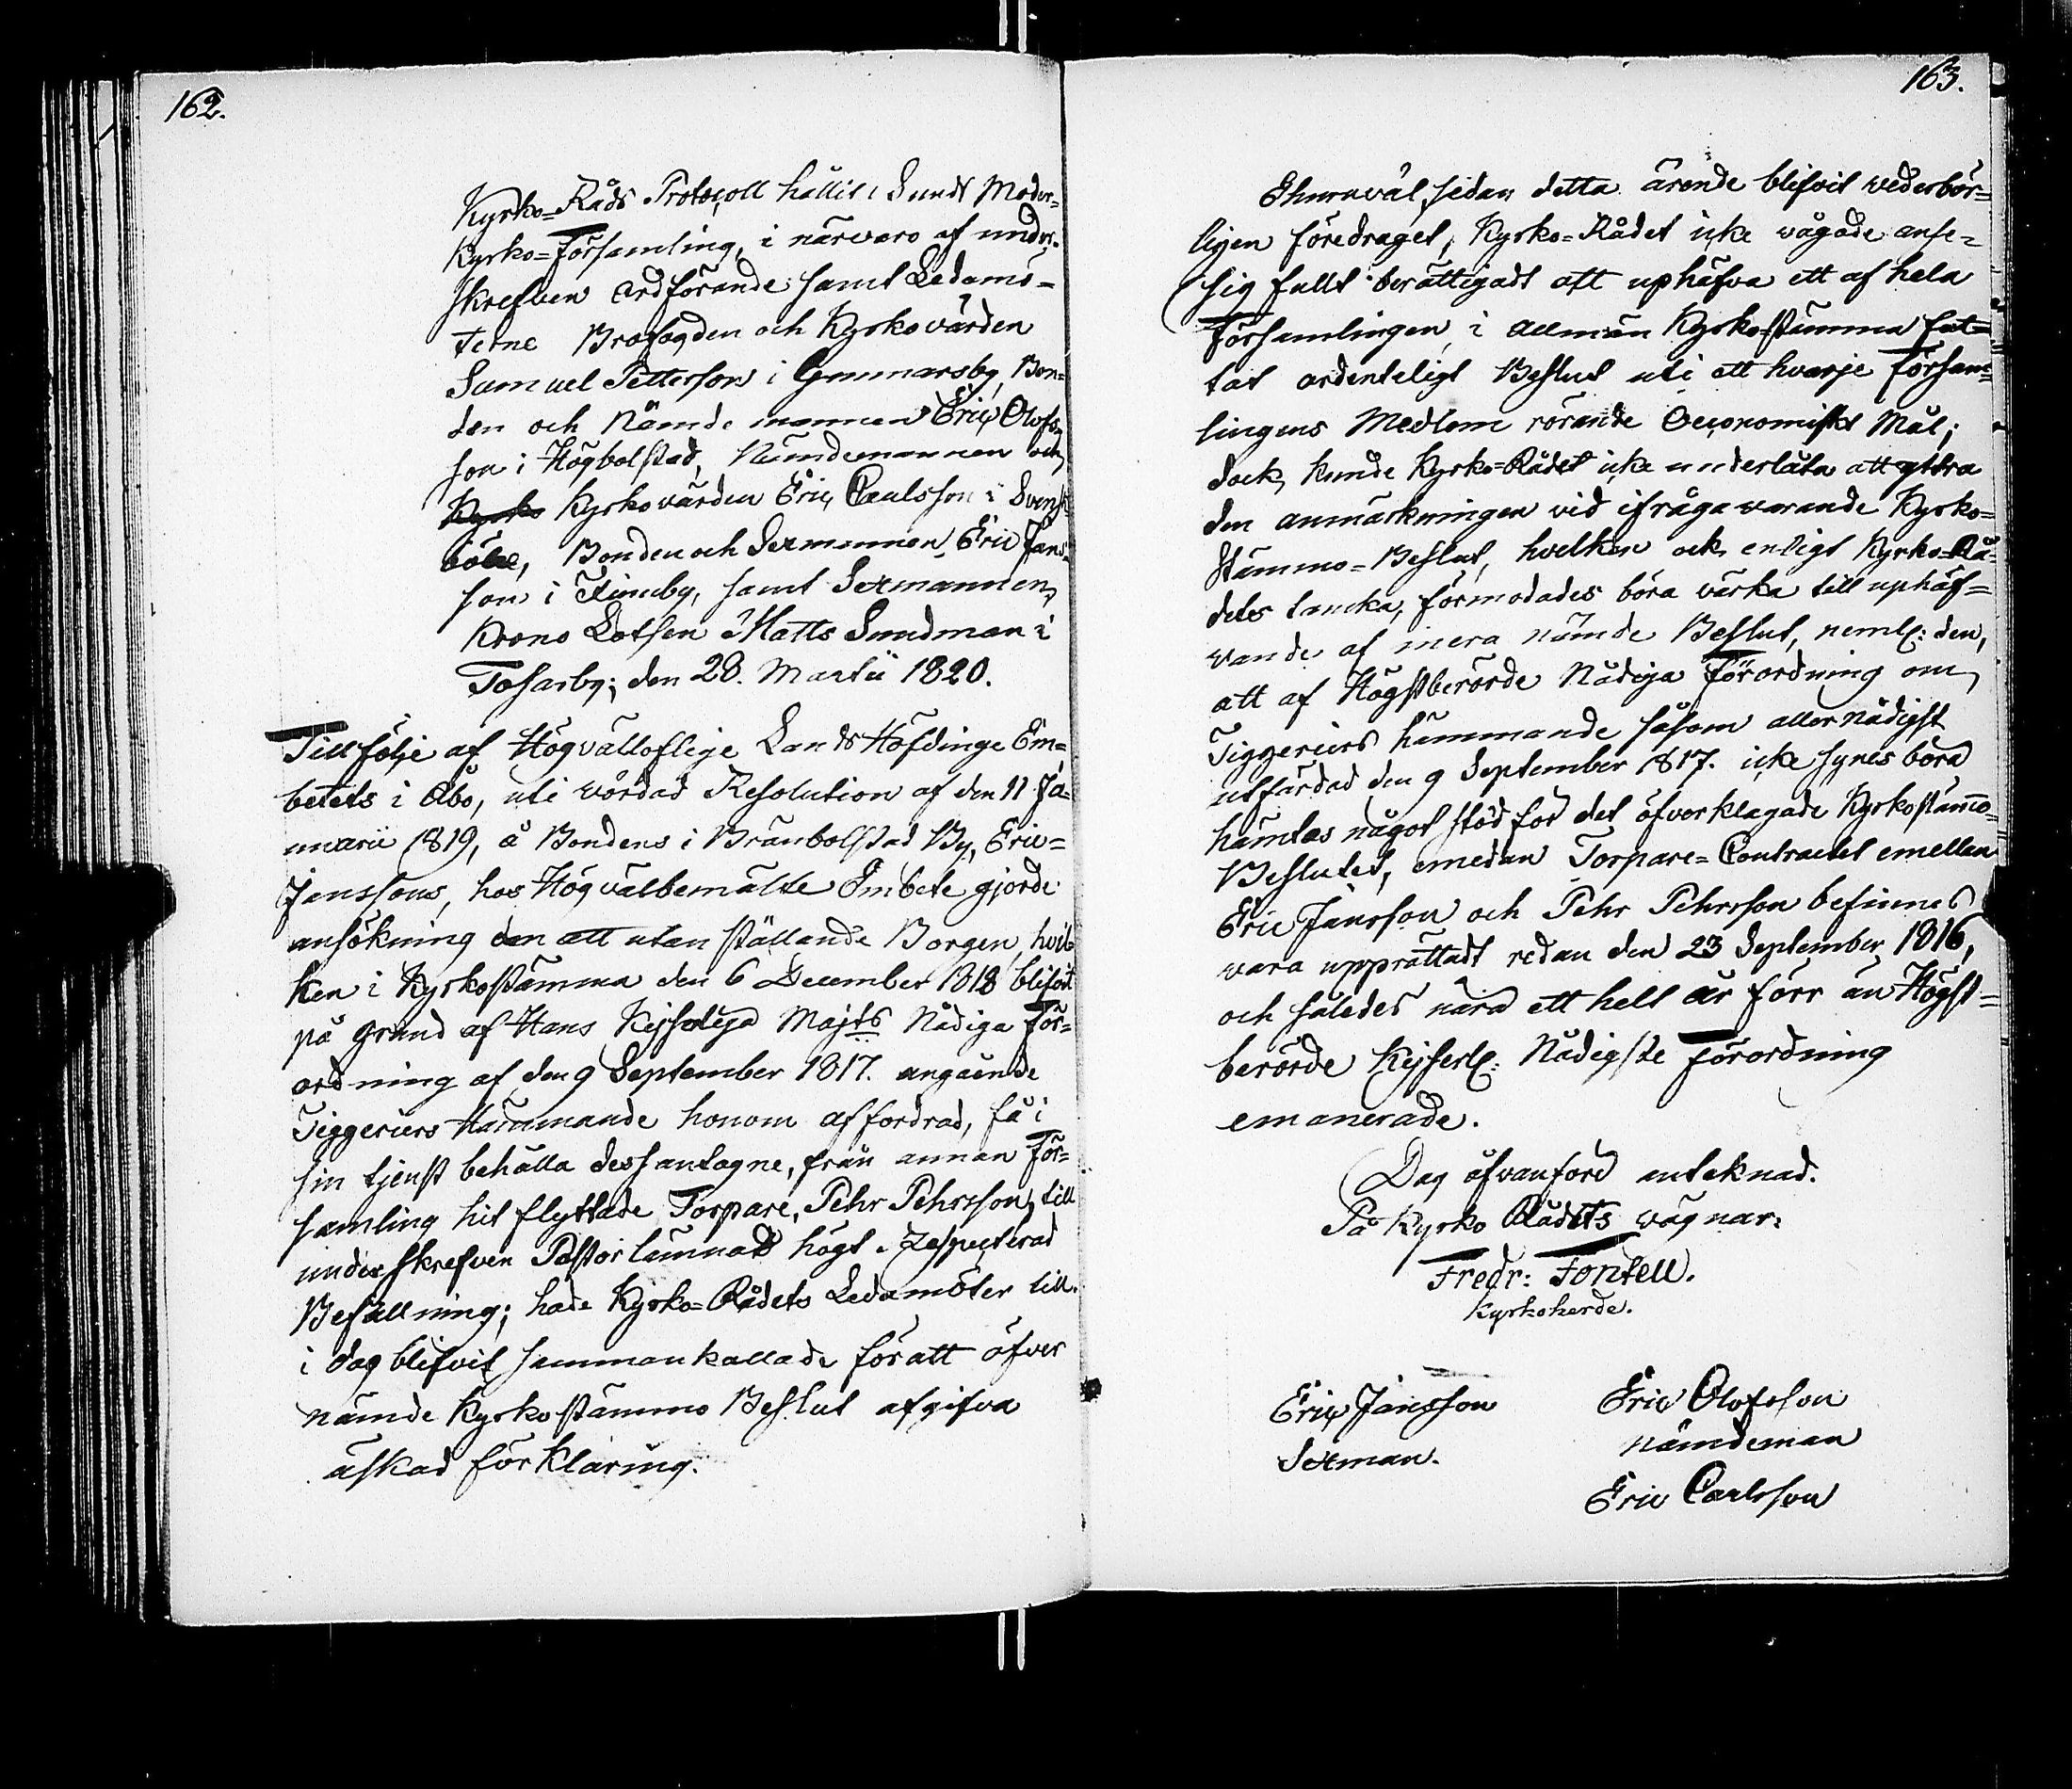 162.
Kyrko=Råds Protocoll hållit i Sunds Moder=
Kyrko=Församling, i närvaro af under=
skrefven Ordförande samt Ledamö=
terne Brofogden och Kyrkovärden
Samuel Petterson i Gunnarsby, Bon=
den och Nämdemannen Eric Olofs=
son i Högbolstad, Nämdemannen och
Kyrko Kyrkovärden Eric Carlsson i Svens=
böhle, Bonden och Sexmannen Eric Jans=
son i Finnby, samt Sexmannen,
Krono Lotsen Matts Sundman i
Tosarby; den 28. Martii 1820.
Till följe af Högvälloflige Lands Höfdinge Em=
betets i Åbo, uti vördad Resolution af den 11 Ja=
nuarii 1819, å Bondens i Brändbolstad By, Eric
Janssons, hos Högvälbemälte Embete gjorde
ansökning om att utan ställande Borgen, hvil=
ken i Kyrkostämma den 6 December 1818 blifvit
på grund af Hans Kejserliga Majts Nådiga För=
ordning af den 9 September 1817. angående
Tiggeriers Hämmande honom affordrad, få i
sin tjenst behålla dess antagne, från annan För=
samling hit flyttade Torpare, Pehr Pehrsson, till
underskrefven Pastor lämnade högt respecterad
Befallning; hade Kyrko=Rådets Ledamöter till
i dag blifvit sammankallade för att öfver
nämde Kyrkostämmo Beslut afgifva
äskad förklaring.
163.
Ehuruväl, sedan detta ärende blifvit vederbör=
ligen föredraget, Kyrko=Rådet icke vågade anse
sig fullt berättigadt att uphäfva ett af hela
Församlingen, i allmän Kyrko=stämma fat=
tat ordenteligt Beslut uti ett hvarje Försam=
lingens Medlem rörande Oeconomiskt Mål;
dock kunde Kyrko=Rådet icke underlåta att yttra
den anmärkningen vid ifrågavarande Kyrko=
Stämmo=Beslut, hvilken ock enligt Kyrko=Rå=
dets tancka, förmodades böra värka till uphäf=
vande af mera nämde Beslut, neml: den,
att af Högstberörde Nådiga Förordning om
Tiggeriers hämmande såsom allernådigst
utfärdad den 9 September 1817. icke synes böra
hämtas något stöd för det öfverklagade Kyrkostämmo=
Beslutet, emedan Torpare=Contractet emellan
Eric Jansson och Pehr Pehrsson befinnes
vara upprättadt redan den 23 September 1816,
och således nära ett helt år förr än Högst=
berörde Kejserl: Nådigste Förordning
emanerade.
Dag ofvanförd anteknad.
På Kyrko Rådets vägnar:
Fredr: Fontell.
Kyrkoherde.
Eric Jansson
Sexman.
Eric Olofsson
Nämdeman
Eric Carlsson